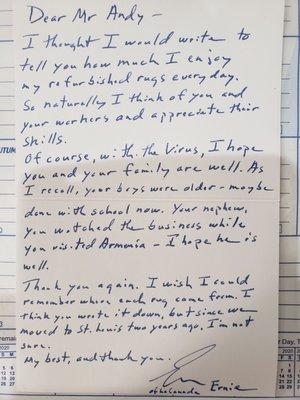 Dear Mr Andy –
I thought I would write to
tell you how much I enjoy
my refurbished rugs everyday.
So naturally I think of you and
your workers and appreciate their
skills.
Of course, with the Virus, I hope
you and your family are well. As
I recall, your boys were older – maybe
done with school now. Your nephew,
you watched the business while
you visited Armenia – I hope he is
well.
Thank you again. I wish I could
remember where each rug came from. I
think you wrote it down, but since we
moved to St. Louis two years ago, I'm not
sure.
My best, and thank you.
Ernie
2020
2020